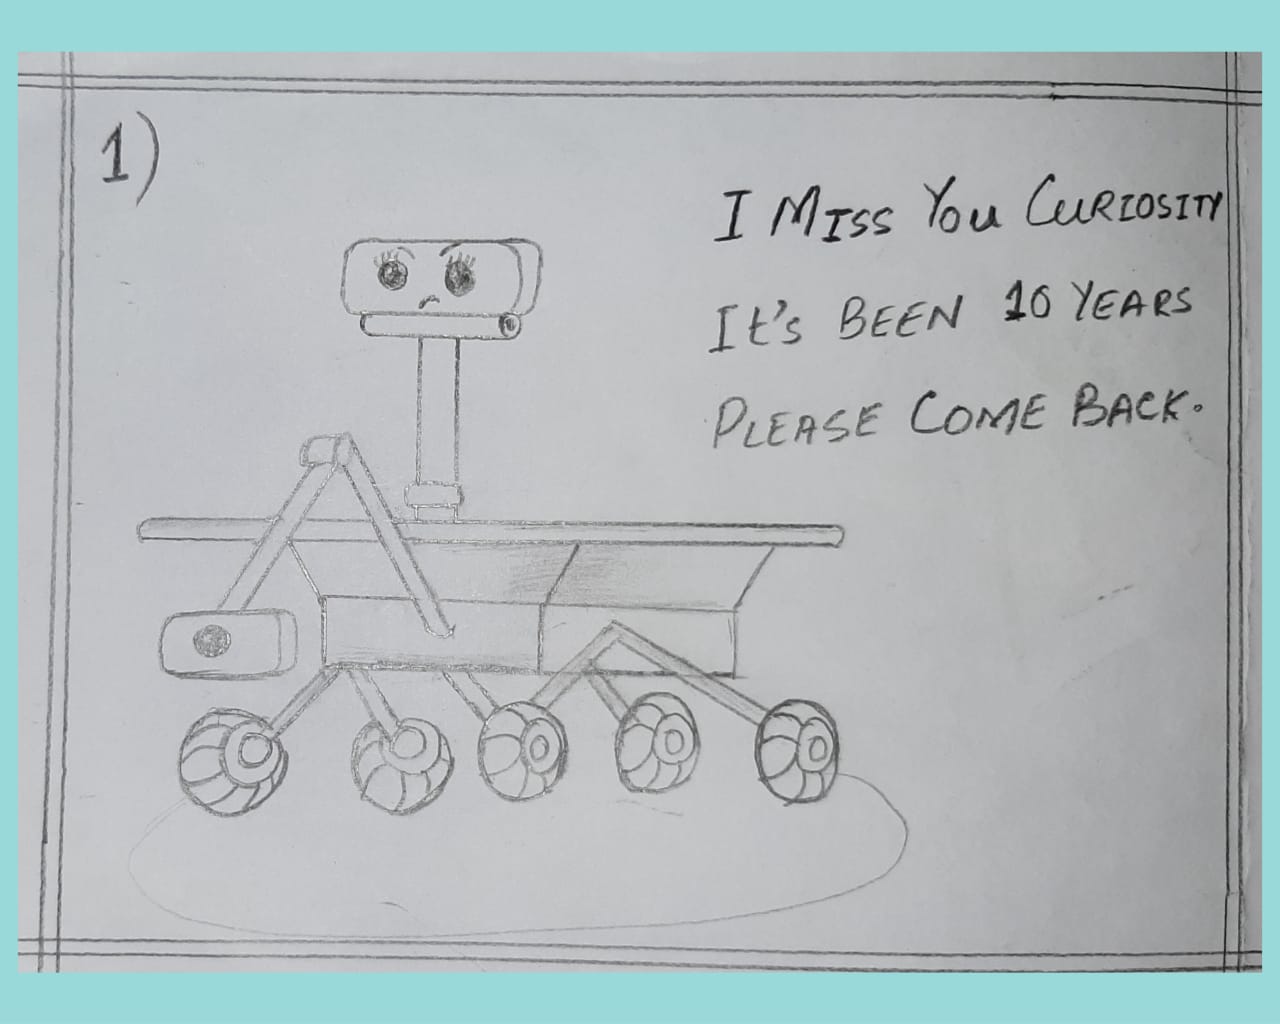 1)
I MISS YOU CURIOSITY
IT'S BEEN 10 YEARS
PLEASE COME BACK.